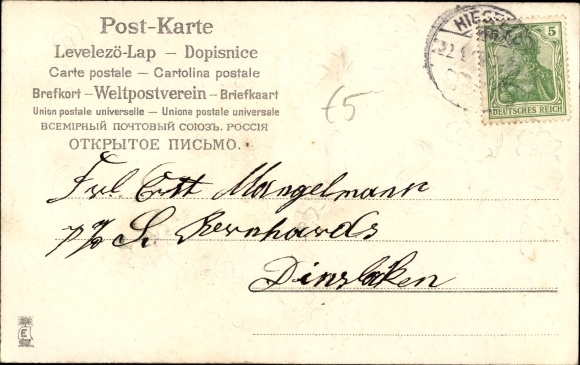 Post-Karte
Levelezö-Lap — Dopisnice
Carte postale — Cartolina postale
Brefkort — Weltpostverein — Briefkaart
Union postale universelle — Unione postale universale
ВСЕМІРНЫЙ ПОЧТОВЫЙ СОЮЗЪ. РОССІЯ
ОТКРЫТОЕ ПИСЬМО.
5
DEUTSCHES REICH
£5
Frl Mangelmann
S. Bernhards
Dinslaken
E